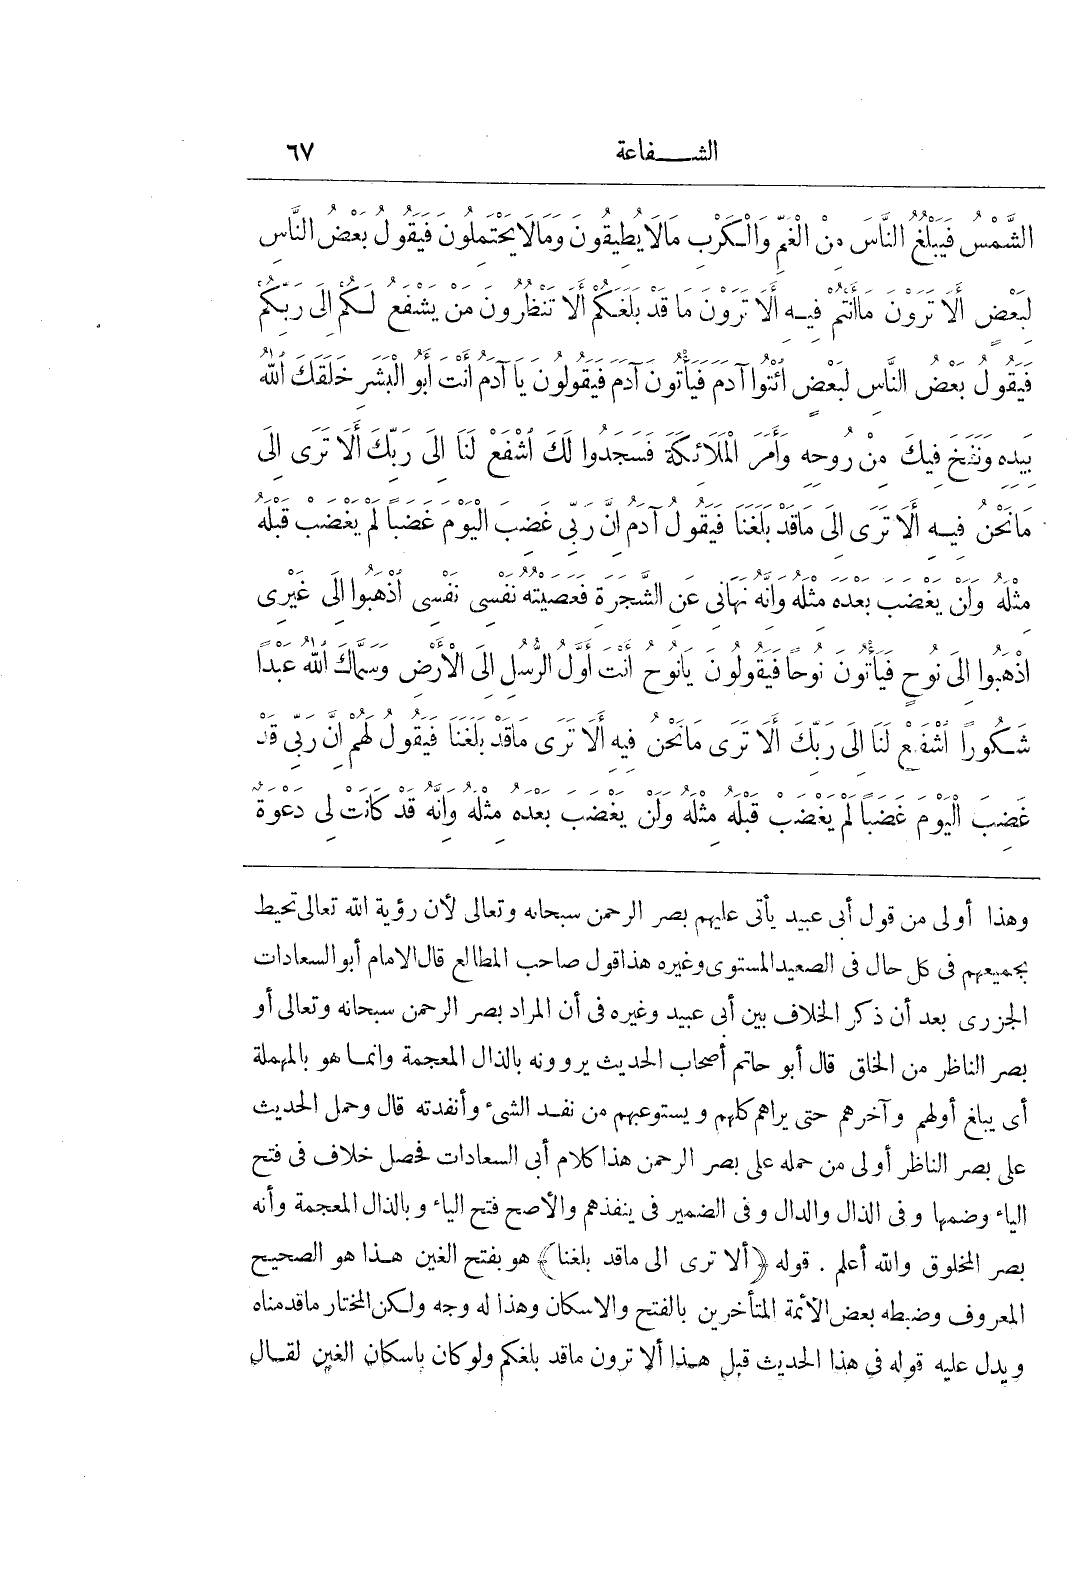 الشفاعة ٦٧
الشَّمْسُ فَيَبْلُغُ النَّاسَ مِنَ الْغَمِّ وَالْكَرْبِ مَالَا يُطِيقُونَ وَمَالَا يَحْتَمِلُونَ فَيَقُولُ بَعْضُ النَّاسِ
لِبَعْضٍ أَلَا تَرَوْنَ مَاأَنْتُمْ فِيهِ أَلَا تَرَوْنَ مَا قَدْ بَلَغَكُمْ أَلَا تَنْظُرُونَ مَنْ يَشْفَعُ لَكُمْ إِلَى رَبِّكُمْ
فَيَقُولُ بَعْضُ النَّاسِ لِبَعْضٍ ائْتُوا آدَمَ فَيَأْتُونَ آدَمَ فَيَقُولُونَ يَا آدَمُ أَنْتَ أَبُو الْبَشَرِ خَلَقَكَ اللهُ
بِيَدِهِ وَنَفَخَ فِيكَ مِنْ رُوحِهِ وَأَمَرَ الْمَلَائِكَةَ فَسَجَدُوا لَكَ اشْفَعْ لَنَا إِلَى رَبِّكَ أَلَا تَرَى إِلَى
مَانَحْنُ فِيهِ أَلَا تَرَى إِلَى مَاقَدْ بَلَغَنَا فَيَقُولُ آدَمُ إِنَّ رَبِّى غَضِبَ الْيَوْمَ غَضَبًا لَمْ يَغْضَبْ قَبْلَهُ
مِثْلَهُ وَلَنْ يَغْضَبَ بَعْدَهُ مِثْلَهُ وَإِنَّهُ نَهَانِى عَنِ الشَّجَرَةِ فَعَصَيْتُهُ نَفْسِى نَفْسِى اذْهَبُوا إِلَى غَيْرِى
اذْهَبُوا إِلَى نُوحٍ فَيَأْتُونَ نُوحًا فَيَقُولُونَ يَانُوحُ أَنْتَ أَوَّلُ الرُّسُلِ إِلَى الْأَرْضِ وَسَمَّاكَ اللهُ عَبْدًا
شَكُورًا اشْفَعْ لَنَا إِلَى رَبِّكَ أَلَا تَرَى مَانَحْنُ فِيهِ أَلَا تَرَى مَاقَدْ بَلَغَنَا فَيَقُولُ لَهُمْ إِنَّ رَبِّى قَدْ
غَضِبَ الْيَوْمَ غَضَبًا لَمْ يَغْضَبْ قَبْلَهُ مِثْلَهُ وَلَنْ يَغْضَبَ بَعْدَهُ مِثْلَهُ وَإِنَّهُ قَدْ كَانَتْ لِى دَعْوَةٌ
وهذا أولى من قول أبى عبيد يأتى عليهم بصر الرحمن سبحانه وتعالى لأن رؤية الله تعالى تحيط
بجميعهم فى كل حال فى الصعيد المستوى وغيره هذا قول صاحب المطالع قال الامام أبو السعادات
الجزرى بعد أن ذكر الخلاف بين أبى عبيد وغيره فى أن المراد بصر الرحمن سبحانه وتعالى أو
بصر الناظر من الخلق قال أبو حاتم أصحاب الحديث يروونه بالذال المعجمة وانما هو بالمهملة
أى يبلغ أولهم وآخرهم حتى يراهم كلهم ويستوعبهم من نفد الشىء وأنفدته قال وحمل الحديث
على بصر الناظر أولى من حمله على بصر الرحمن هذا كلام أبى السعادات فحصل خلاف فى فتح
الياء وضمها وفى الذال والدال وفى الضمير فى ينفذهم والأصح فتح الياء وبالذال المعجمة وأنه
بصر المخلوق والله أعلم . قوله ﴿ألا ترى الى ماقد بلغنا﴾ هو بفتح الغين هذا هو الصحيح
المعروف وضبطه بعض الأئمة المتأخرين بالفتح والاسكان وهذا له وجه ولكن المختار ماقدمناه
ويدل عليه قوله فى هذا الحديث قبل هذا ألا ترون ماقد بلغكم ولو كان باسكان الغين لقال